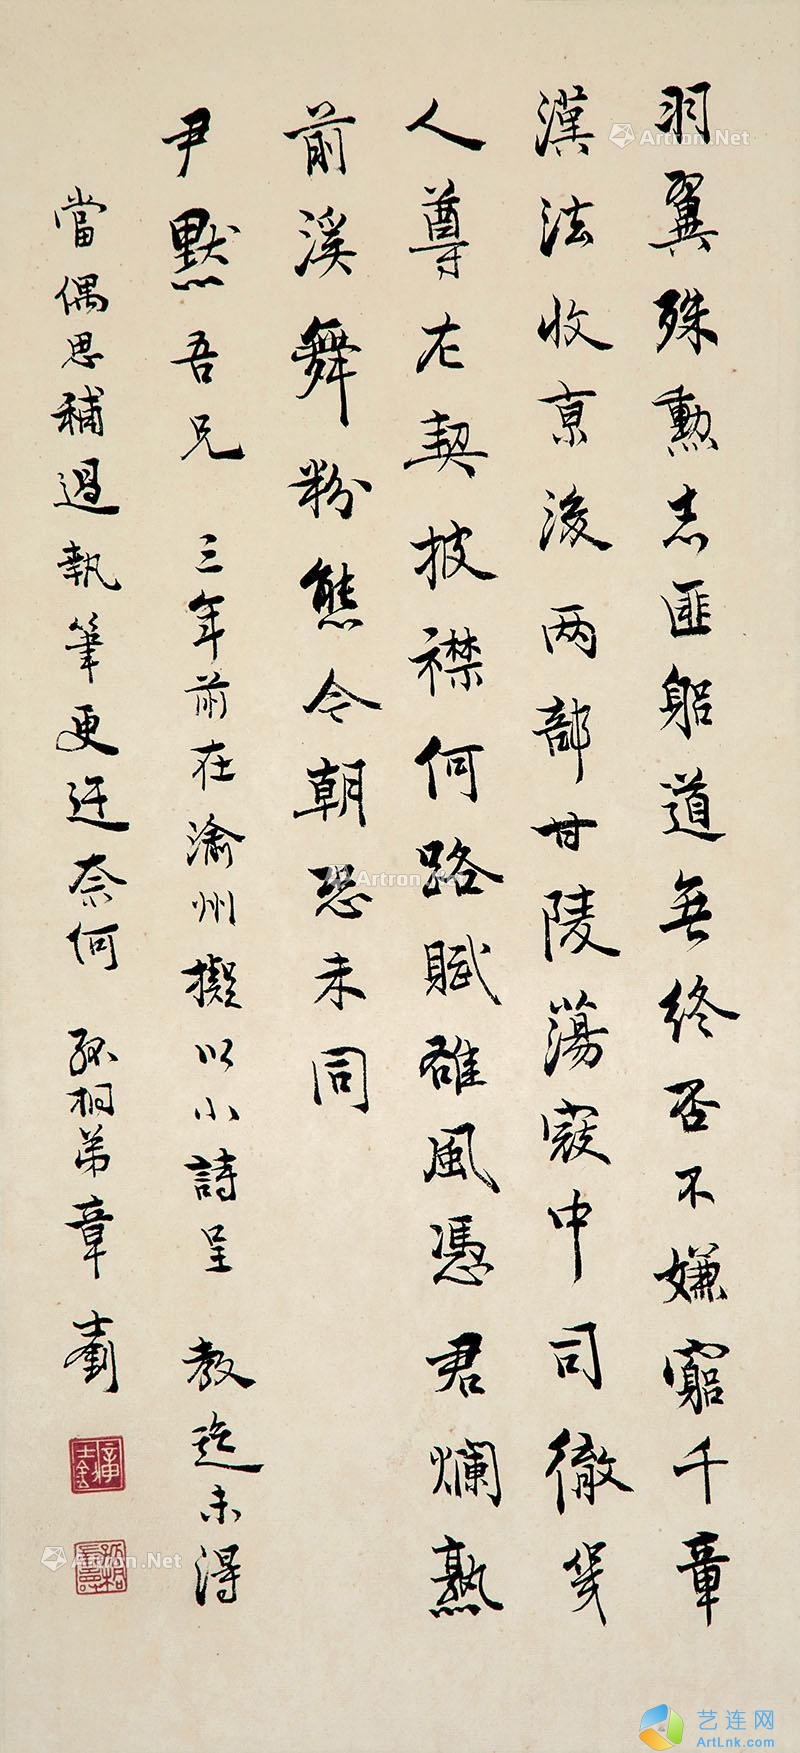 羽翼殊勲志匪躬道無終否不嫌窮千章
漢法收京後兩部甘陵蕩寇中司徹幾
人尊左契披襟何路賦雄風憑君爛熟
前溪舞粉態今朝恐未同
尹默吾兄 三年前在渝州擬以小詩呈 教迄未得
當偶思補過執筆更迂奈何 孤桐弟章士釗
Artron.Net
Artron.Net
Artron.Net
艺连网
ArtLnk.com